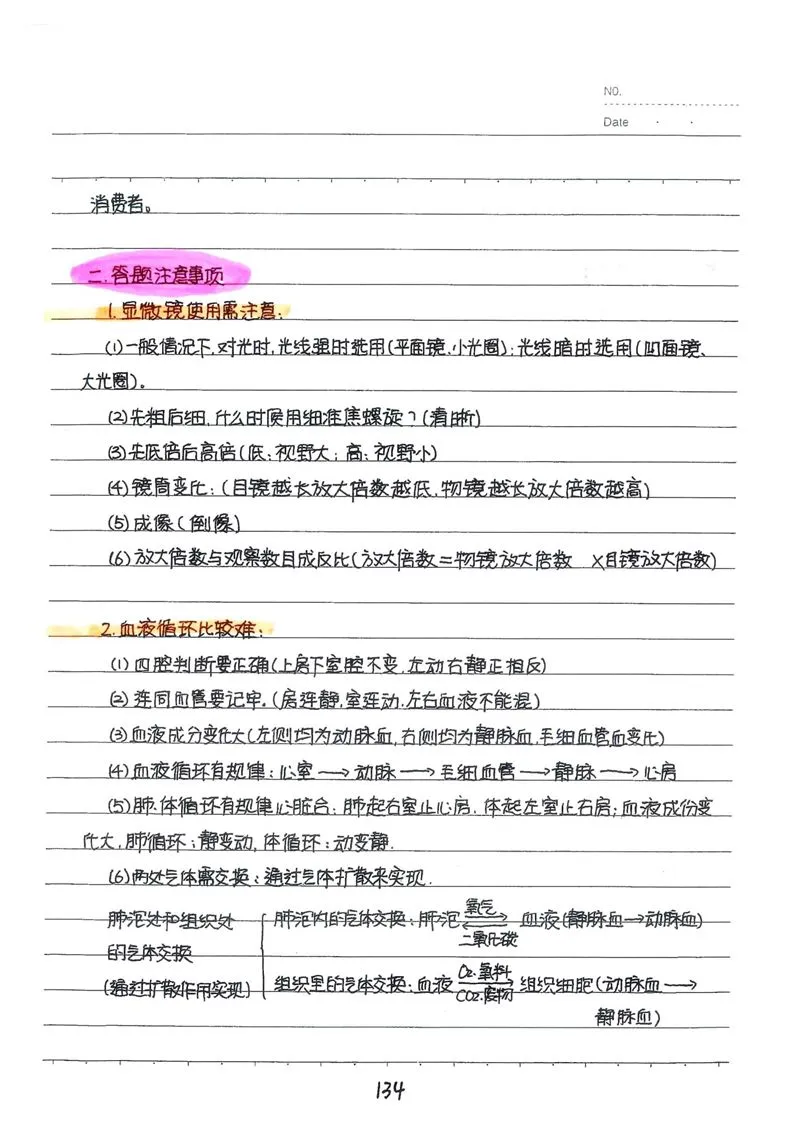 NO.
Date
消费者。
二.答题注意事项
1.显微镜使用需注意:
(1)一般情况下,对光时,光线强时选用(平面镜、小光圈);光线暗时选用(凹面镜、
大光圈)。
(2)先粗后细,什么时候用细准焦螺旋?(清晰)
(3)先低倍后高倍(低:视野大;高:视野小)
(4)镜筒变化:(目镜越长放大倍数越低,物镜越长放大倍数越高)
(5)成像(倒像)
(6)放大倍数与观察数目成反比(放大倍数=物镜放大倍数 ×目镜放大倍数)
2.血液循环比较难:
(1)四腔判断要正确(上房下室腔不变,左动右静正相反)
(2)连同血管要记牢。(房连静,室连动.左右血液不能混)
(3)血液成分变化大(左侧均为动脉血,右侧均为静脉血,毛细血管血变化)
(4)血液循环有规律:心室→动脉→毛细血管→静脉→心房
(5)肺.体循环有规律心脏合:肺起右室止心房.体起左室止右房;血液成份变
化大,肺循环:静变动,体循环:动变静.
(6)两处气体需交换:通过气体扩散来实现.
肺泡处和组织处
的气体交换
(通过扩散作用实现)
肺泡内的气体交换:肺泡 氧气 二氧化碳 血液(静脉血→动脉血)
组织里的气体交换:血液 O2.氧料 CO2.废物 组织细胞(动脉血→
静脉血)
134